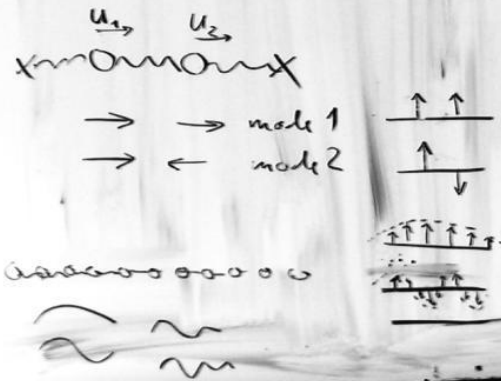 u₁ u₂
mode 1
mode 2